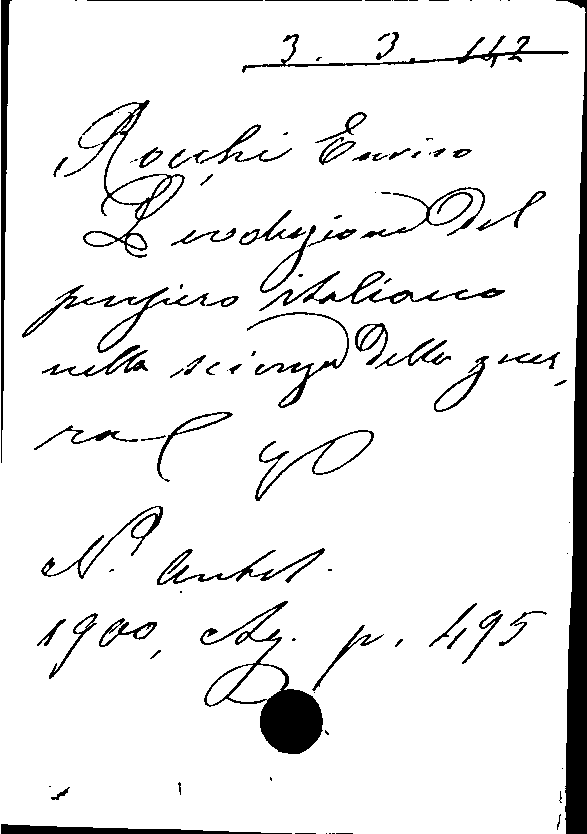 3. 3. 142
Rocchi Enrico
L'evoluzione del
pensiero italiano
nella scienza della guer,
ra
N.ª Antol.
1900, Ag. p. 495